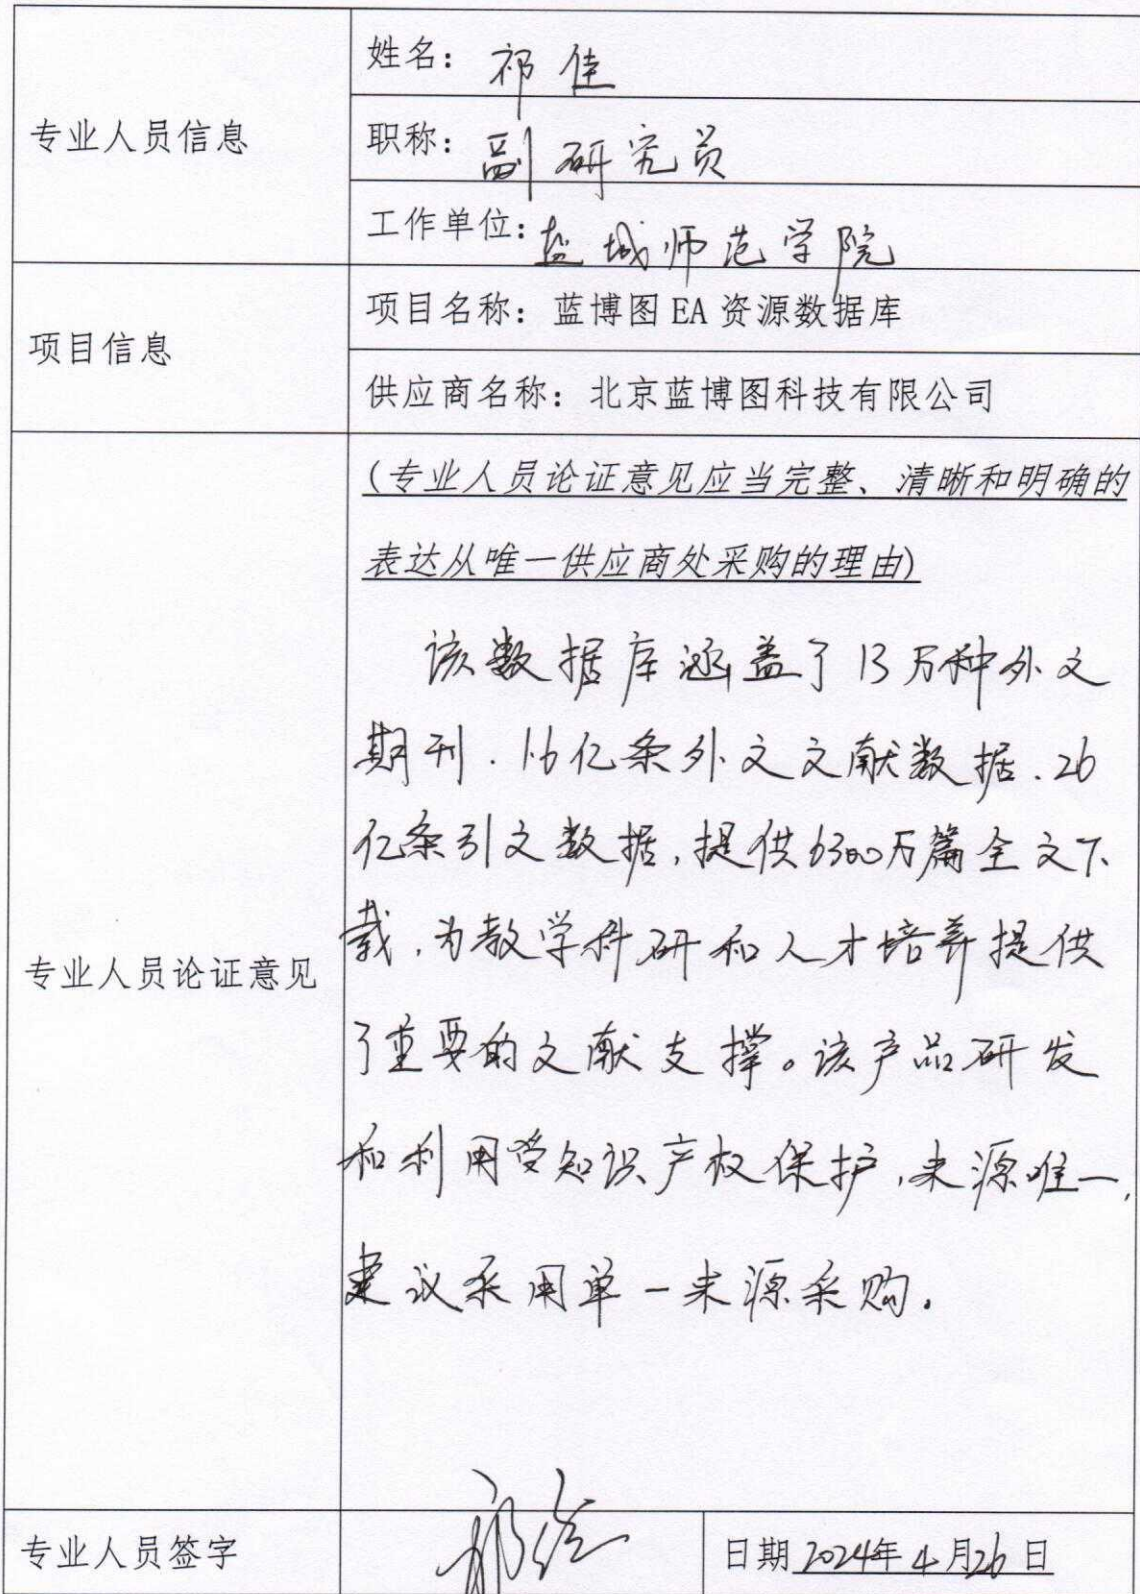 专业人员信息
姓名：祁佳
职称：副研究员
工作单位：盐城师范学院
项目信息
项目名称：蓝博图 EA 资源数据库
供应商名称：北京蓝博图科技有限公司
专业人员论证意见
(专业人员论证意见应当完整、清晰和明确的
表达从唯一供应商处采购的理由)
该数据库涵盖了13万种外文
期刊、1.6亿条外文文献数据、26
亿条引文数据，提供6300万篇全文下
载，为教学科研和人才培养提供
了重要的文献支撑。该产品研发
和利用受知识产权保护，来源唯一，
建议采用单一来源采购。
专业人员签字
祁佳
日期 2024年4月26日